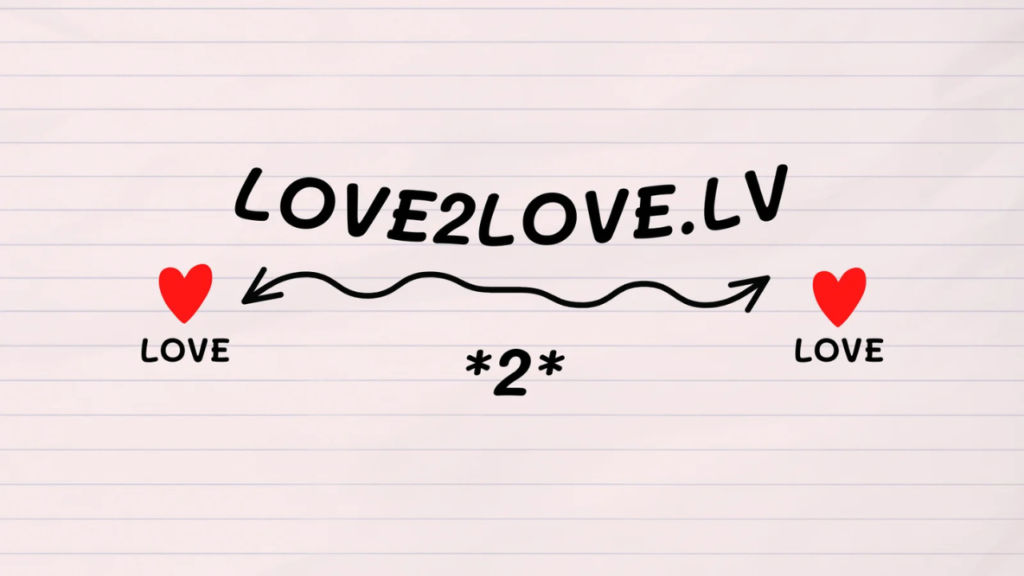 LOVE2LOVE.LV
LOVE
LOVE
*2*